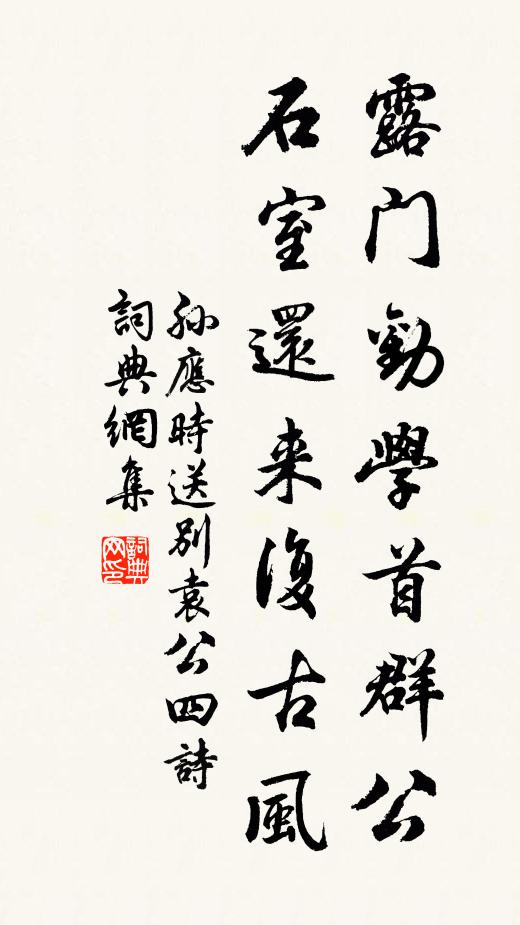 露門勸學首群公
石室還来復古風
孙應時送別袁公四詩
詞典網集
詞典
网印